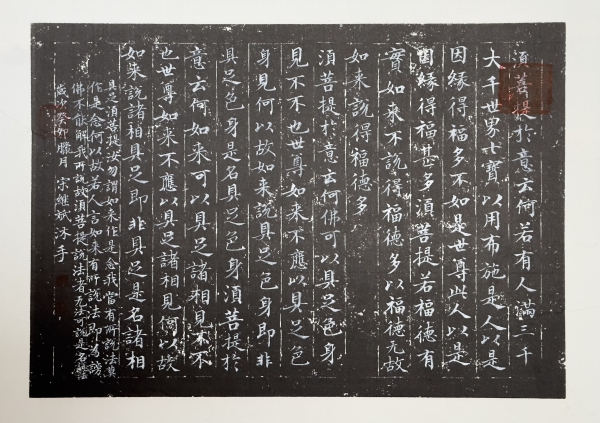 須菩提於意云何若有人滿三千
大千世界七寶以用布施是人以是
因緣得福多不如是世尊此人以是
因緣得福甚多須菩提若福德有
實如来不說得福德多以福德无故
如来說得福德多
須菩提於意云何佛可以具足色身
見不不也世尊如来不應以具足色
身見何以故如来說具足色身即非
具足色身是名具足色身須菩提於
意云何如来可以具足諸相見不不
也世尊如来不應以具足諸相見何以故
如来說諸相具足即非具足是名諸相
具足須菩提汝勿謂如来作是念我當有所說法莫
作是念何以故若人言如来有所說法即為謗
佛不能解我所說故須菩提說法者无法可說是名說
歲次癸卯臘月宗維斌沐手